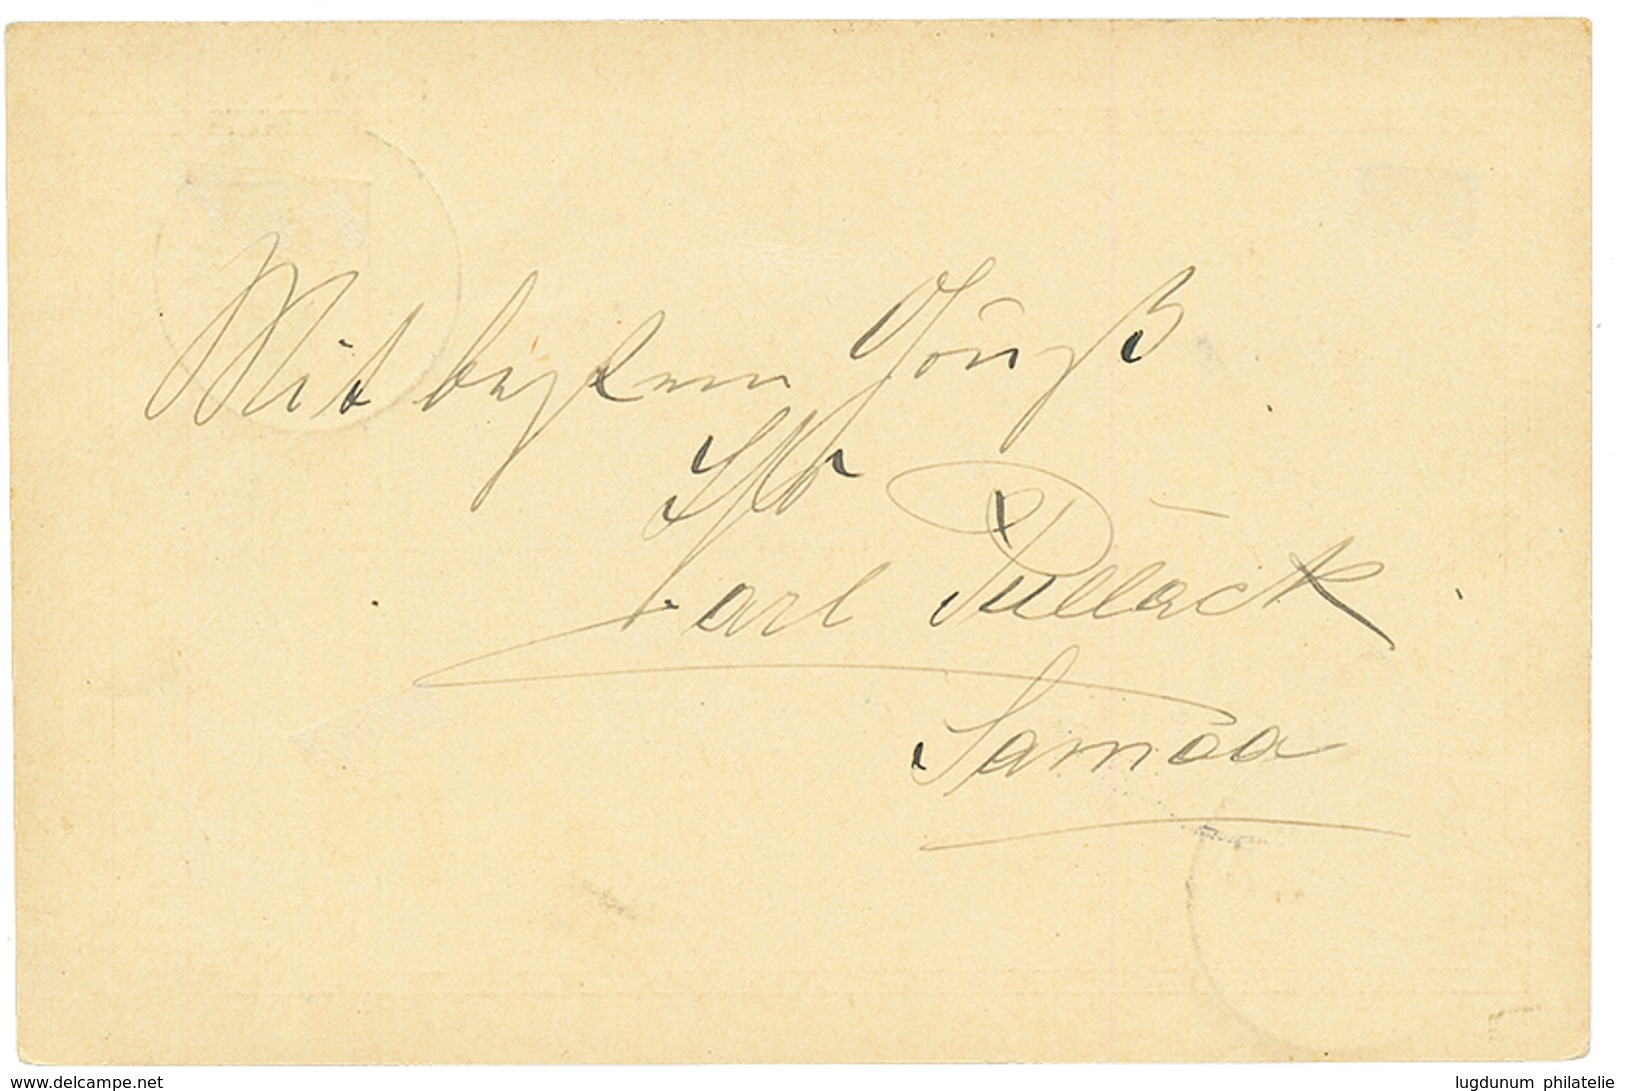 Mit bestem Gruß
Ihr
Carl Pullack
Samoa
www.delcampe.net
lugdunum philatelie